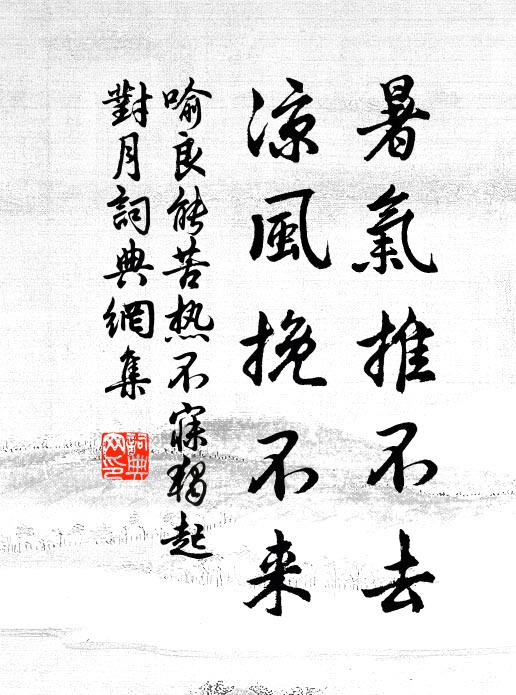 暑氣推不去
涼風挽不来
喻良能苦热不寐獨起
對月詞典網集
詞典
网印